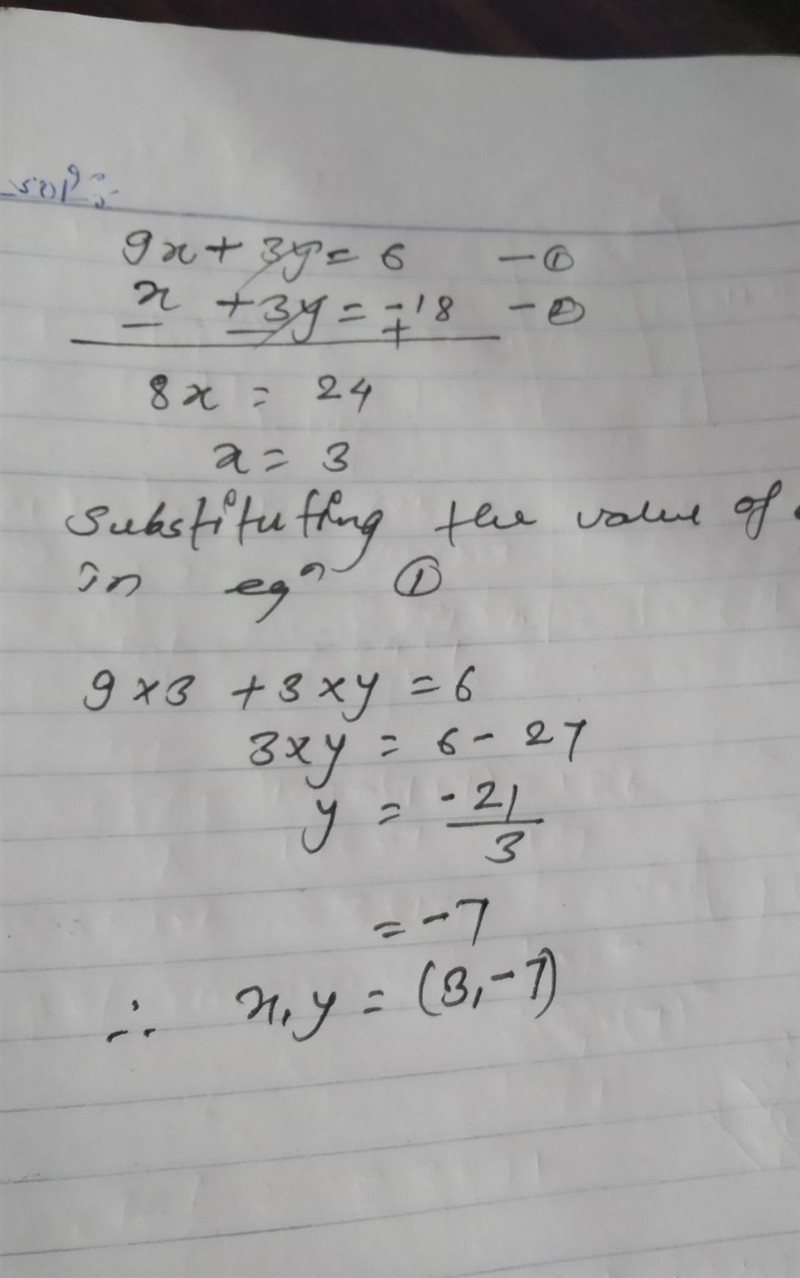 sol:-
9x + 3y = 6 - ①
x + 3y = -18 - ②
- - +
8x = 24
x = 3
Substituting the value of
in eqⁿ ①
9 × 3 + 3 × y = 6
3 × y = 6 - 27
y = -21/3
= -7
∴ x, y = (3, -7)